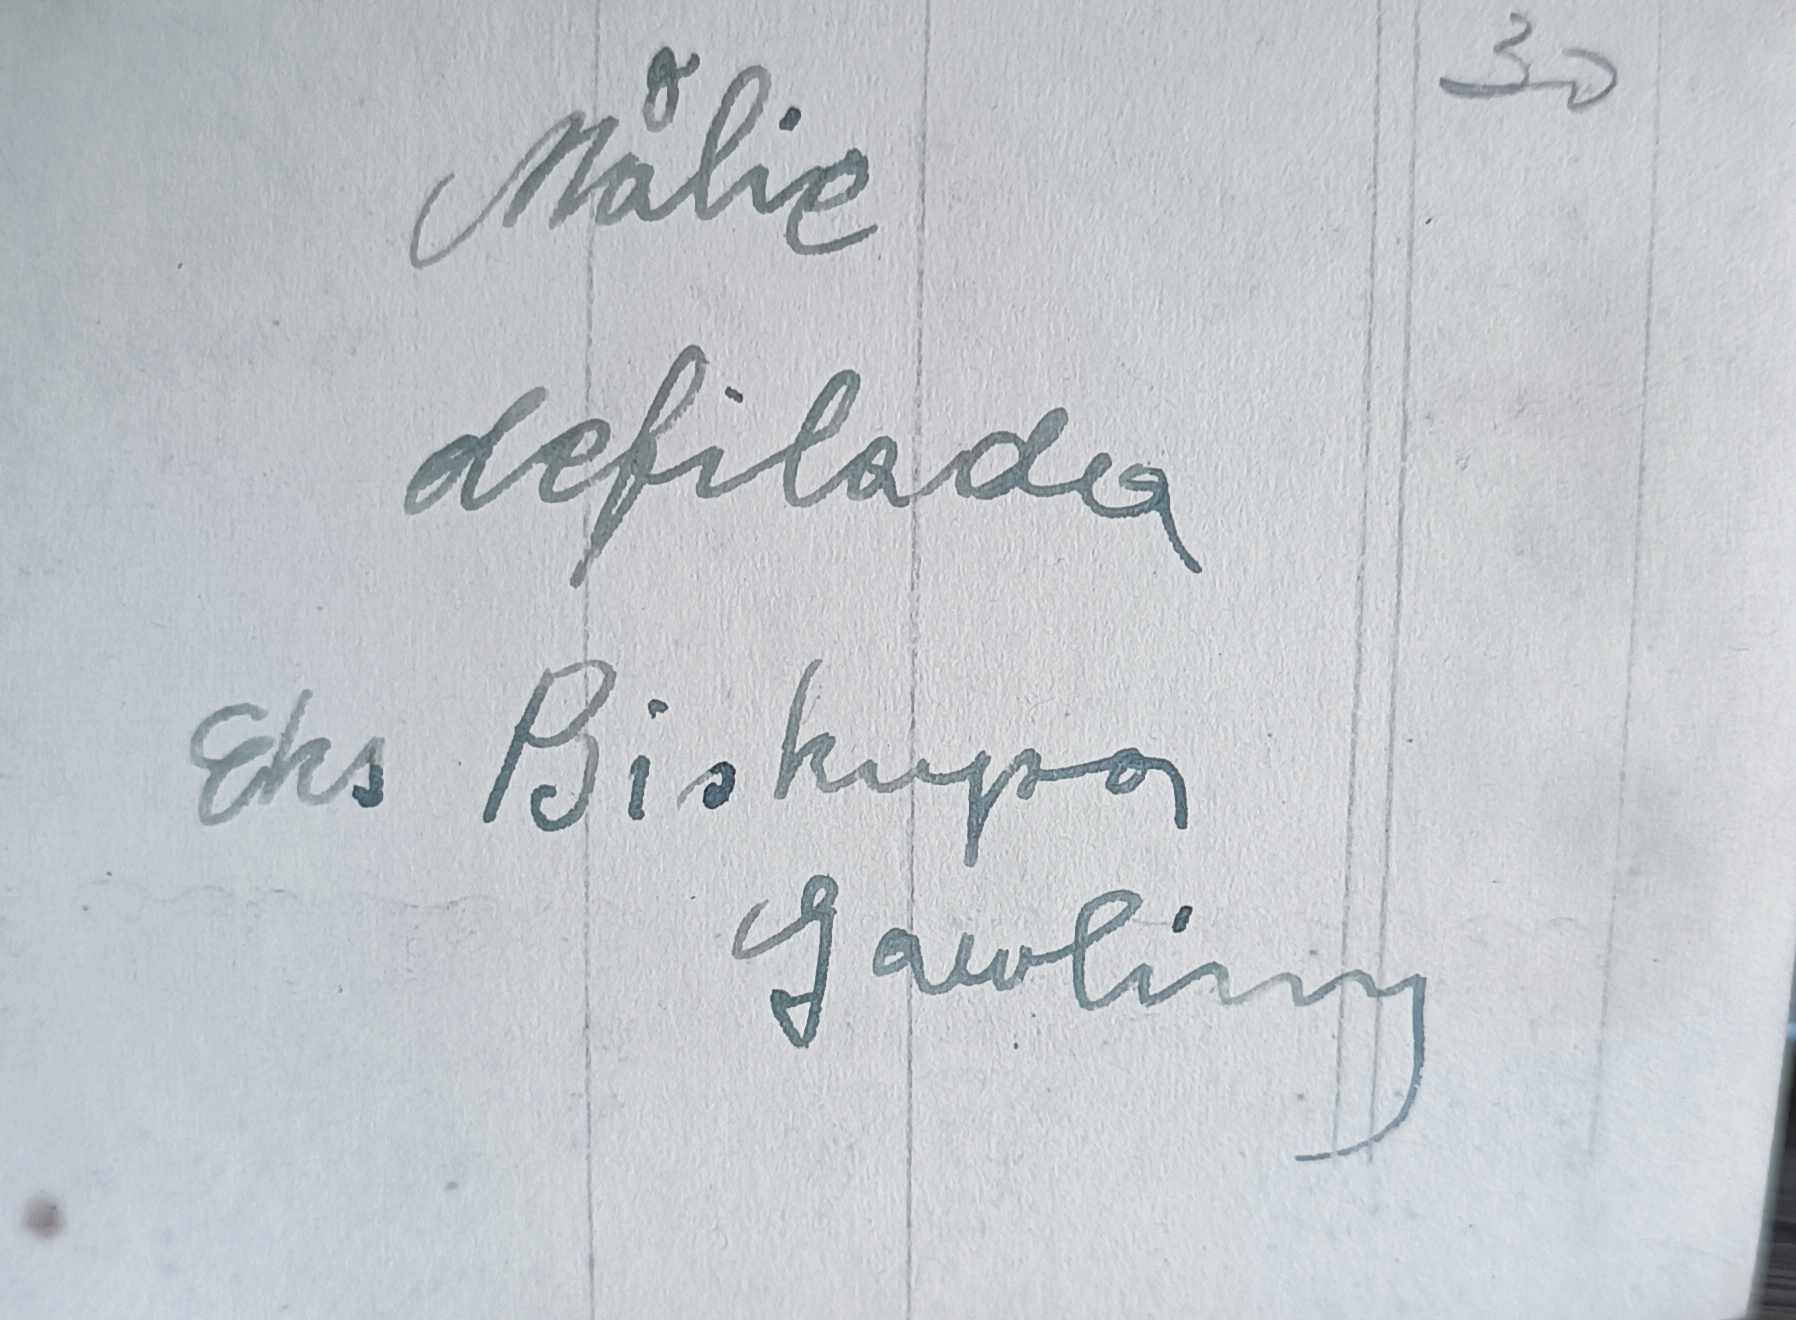 30
Malie
defilada
Eks Biskupa
Gawliny